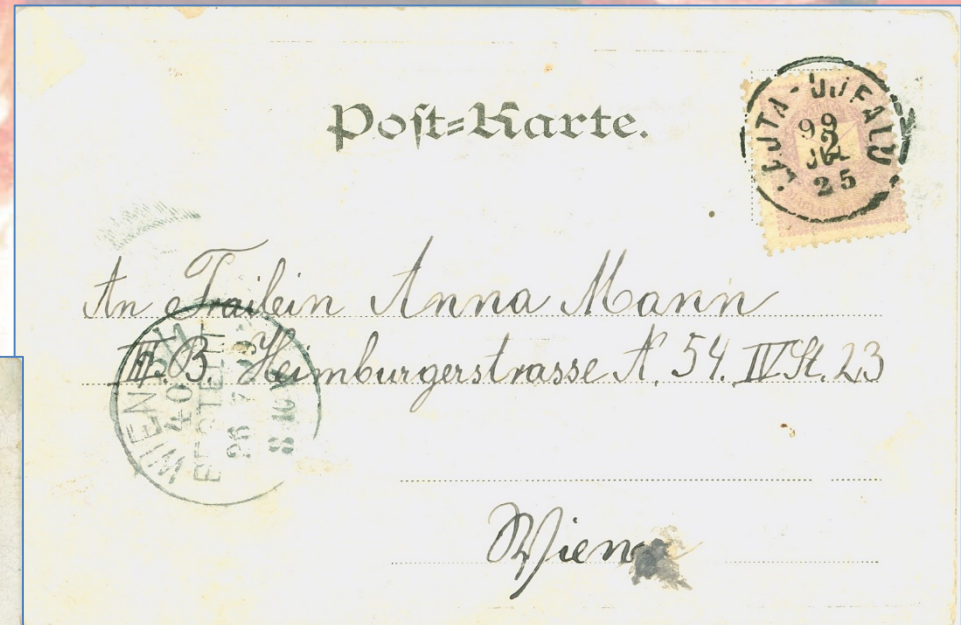 Post=Karte.
LEJTA-UJFALU
99
JUL
25
An Frailein Anna Mann
III.B. Heimburgerstrasse N. 54. IV St. 23
WIEN
40
BESTELLT
Wien